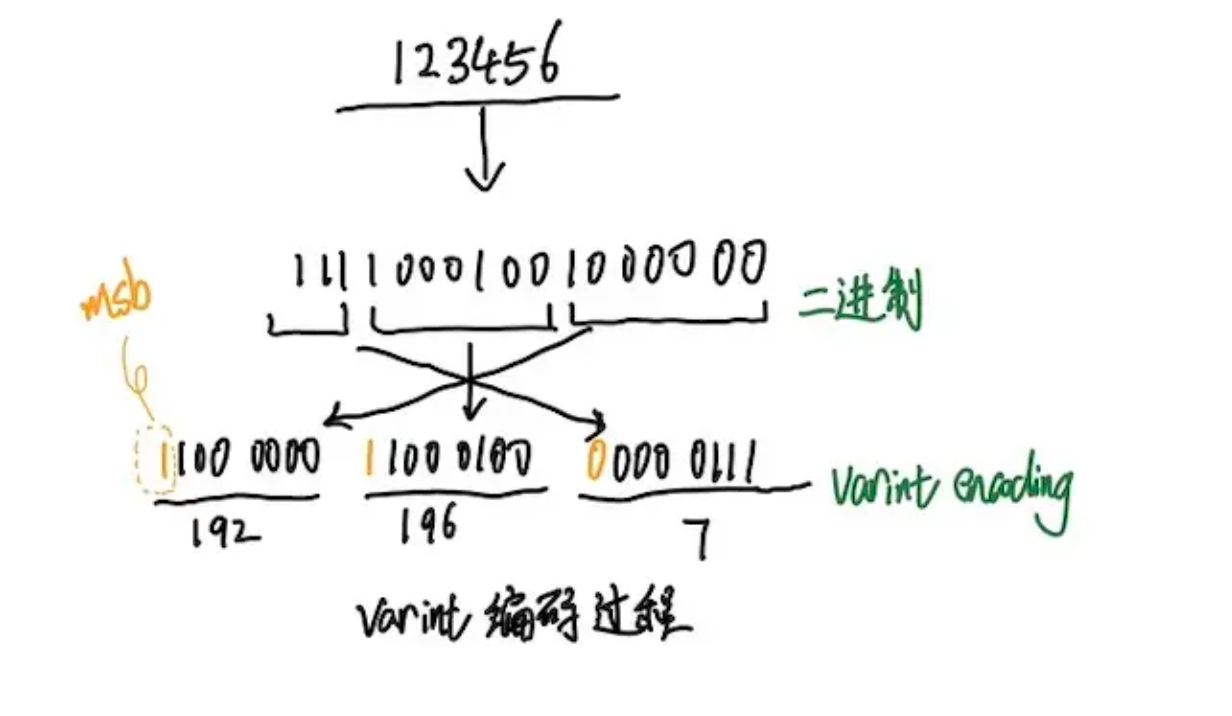 123456
111 1000100 1000000 二进制
msb
1100 0000 1100 0100 0000 0111 varint encoding
192 196 7
varint 编码过程